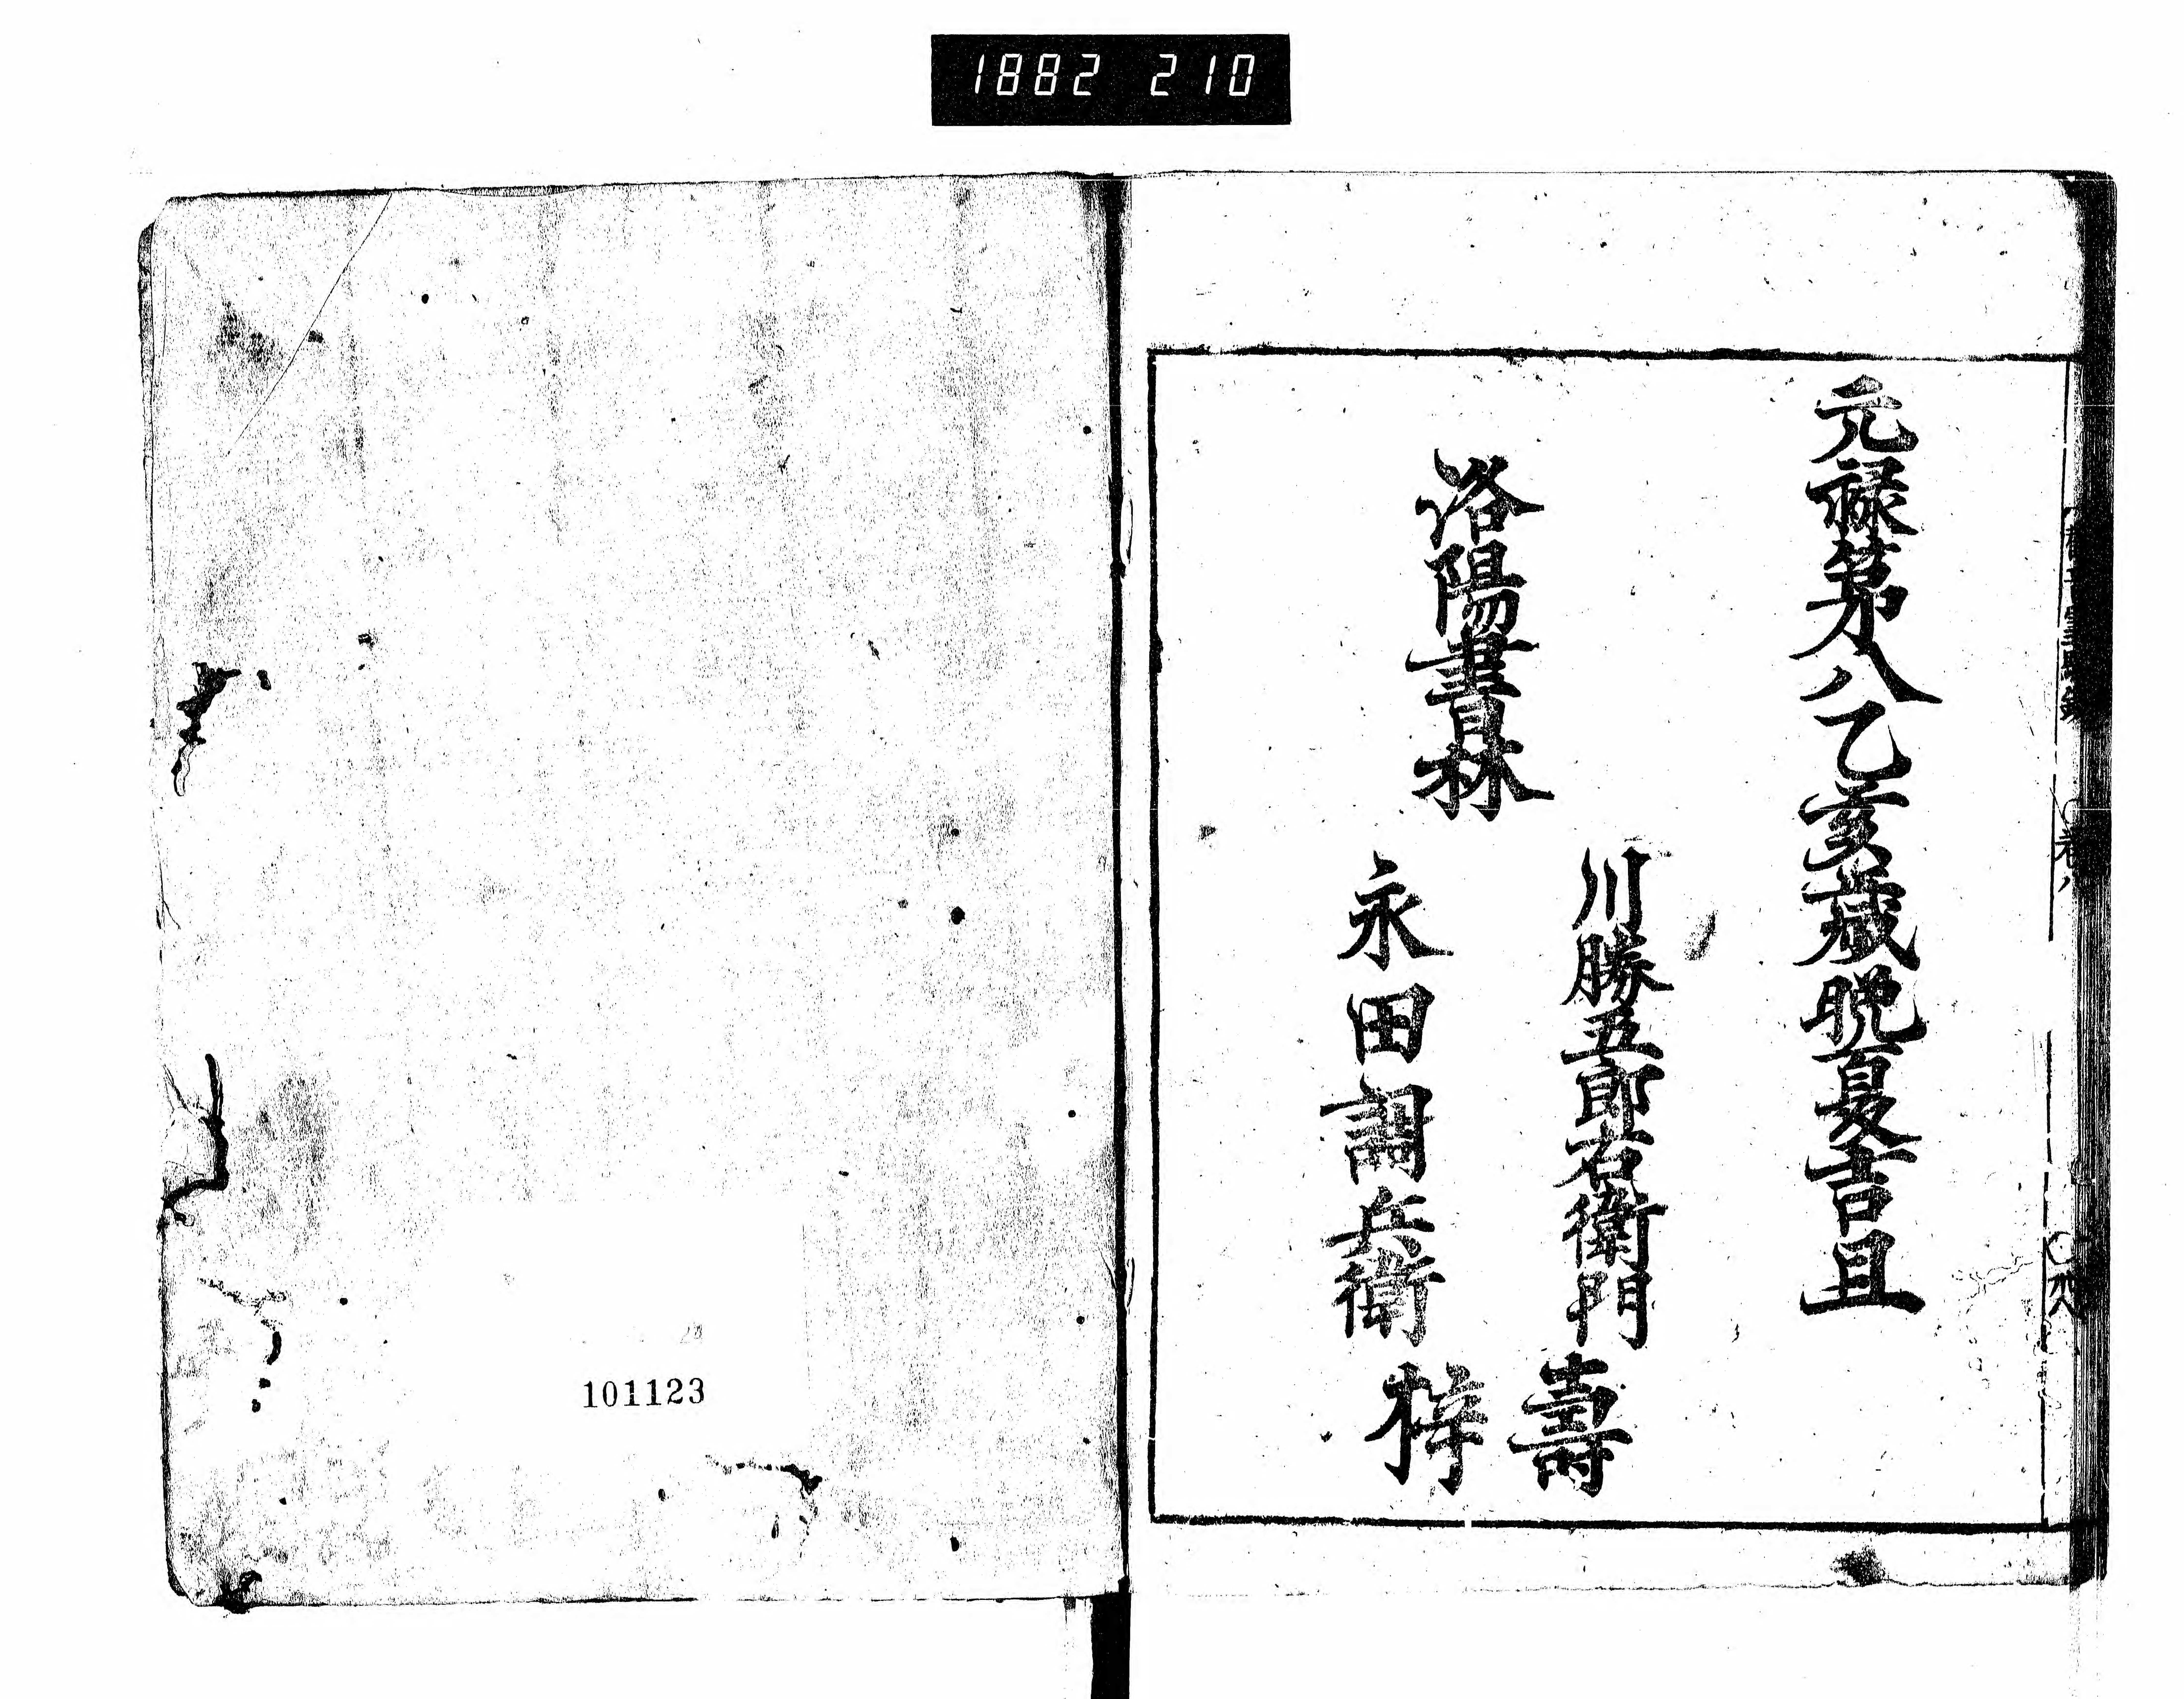 1882 210
元禄第八乙亥歳晩夏吉且
洛陽書林
川勝五郎右衛門
永田調兵衛
壽
梓
101123